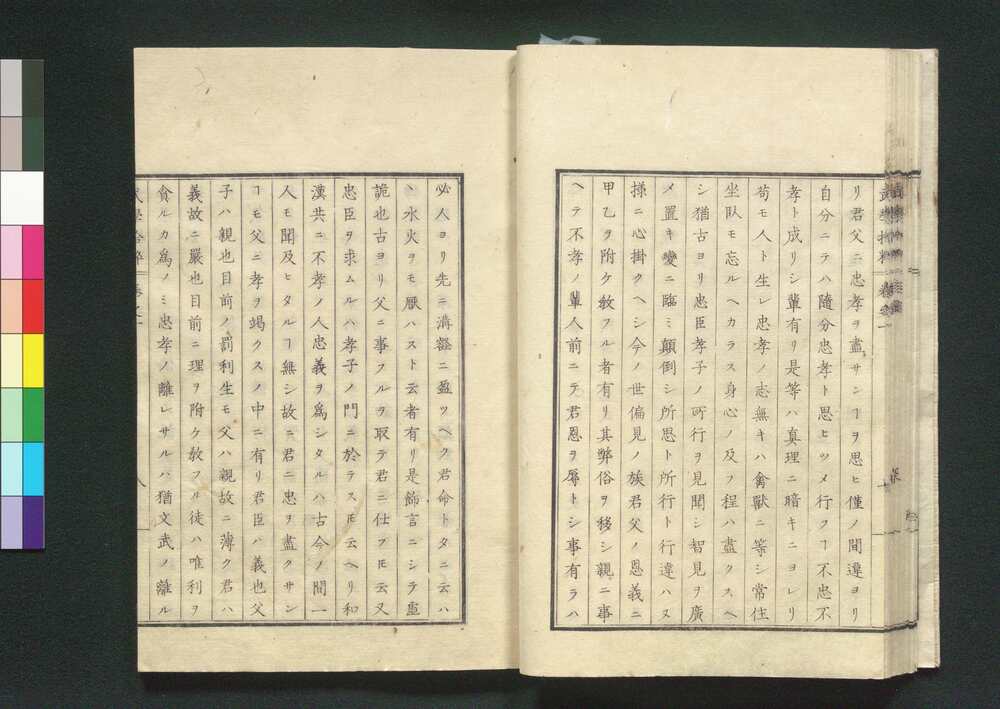 リ君父ニ忠孝ヲ盡サンヿヲ思ヒ僅ノ間違ヨリ
自分ニテハ隨分忠孝ト思ヒツメ行フヿ不忠不
孝ト成リシ輩有リ是等ハ真理ニ暗キニヨレリ
苟モ人ト生レ忠孝ノ志無キハ禽獸ニ等シ常住
坐臥モ忘ルヘカラス身心ノ及フ程ハ盡クスヘ
シ猶古ヨリ忠臣孝子ノ所行ヲ見聞シ智見ヲ廣
メ置キ變ニ臨ミ顛倒シ所思ト所行ト行違ハヌ
樣ニ心掛クヘシ今ノ世偏見ノ族君父ノ恩義ニ
甲乙ヲ附ケ敎フル者有リ其弊俗ヲ移シ親ニ事
ヘテ不孝ノ輩人前ニテ君恩ヲ辱トシ事有ラハ
必人ヨリ先ニ溝壑ニ盈ツヘク君命トタニ云ハ
ヽ水火ヲモ厭ハスト云者有リ是飾言ニシテ虛
詭也古ヨリ父ニ事フルヲ取テ君ニ仕フ𪜈云又
忠臣ヲ求ムルハ孝子ノ門ニ於テス𪜈云ヘリ和
漢共ニ不孝ノ人忠義ヲ爲シタルハ古今ノ間一
人モ聞及ヒタルヿ無シ故ニ君ニ忠ヲ盡クサン
ヿモ父ニ孝ヲ竭クスノ中ニ有リ君臣ハ義也父
子ハ親也目前ノ罰利生モ父ハ親故ニ薄ク君ハ
義故ニ嚴也目前ニ理ヲ附ケ敎フル徒ハ唯利ヲ
貪ルカ爲ノミ忠孝ノ離レサルハ猶文武ノ離ル